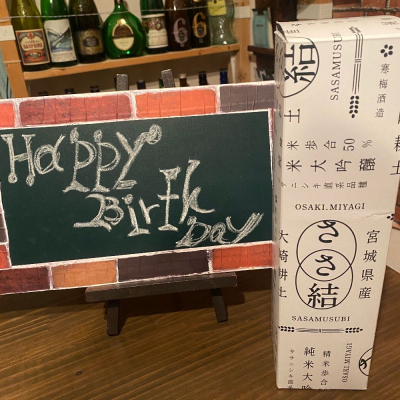 Happy
Birth
Day
結
SASAMUSUBI
寒梅酒造
土
耕土
米歩合50%
米大吟醸
ササニシキ直系品種
OSAKI.MIYAGI
ささ
結
宮城県産
大崎耕土
SASAMUSUBI
OSAKI.MIYAGI
精米歩合
純米大吟
ササニシキ直系
6